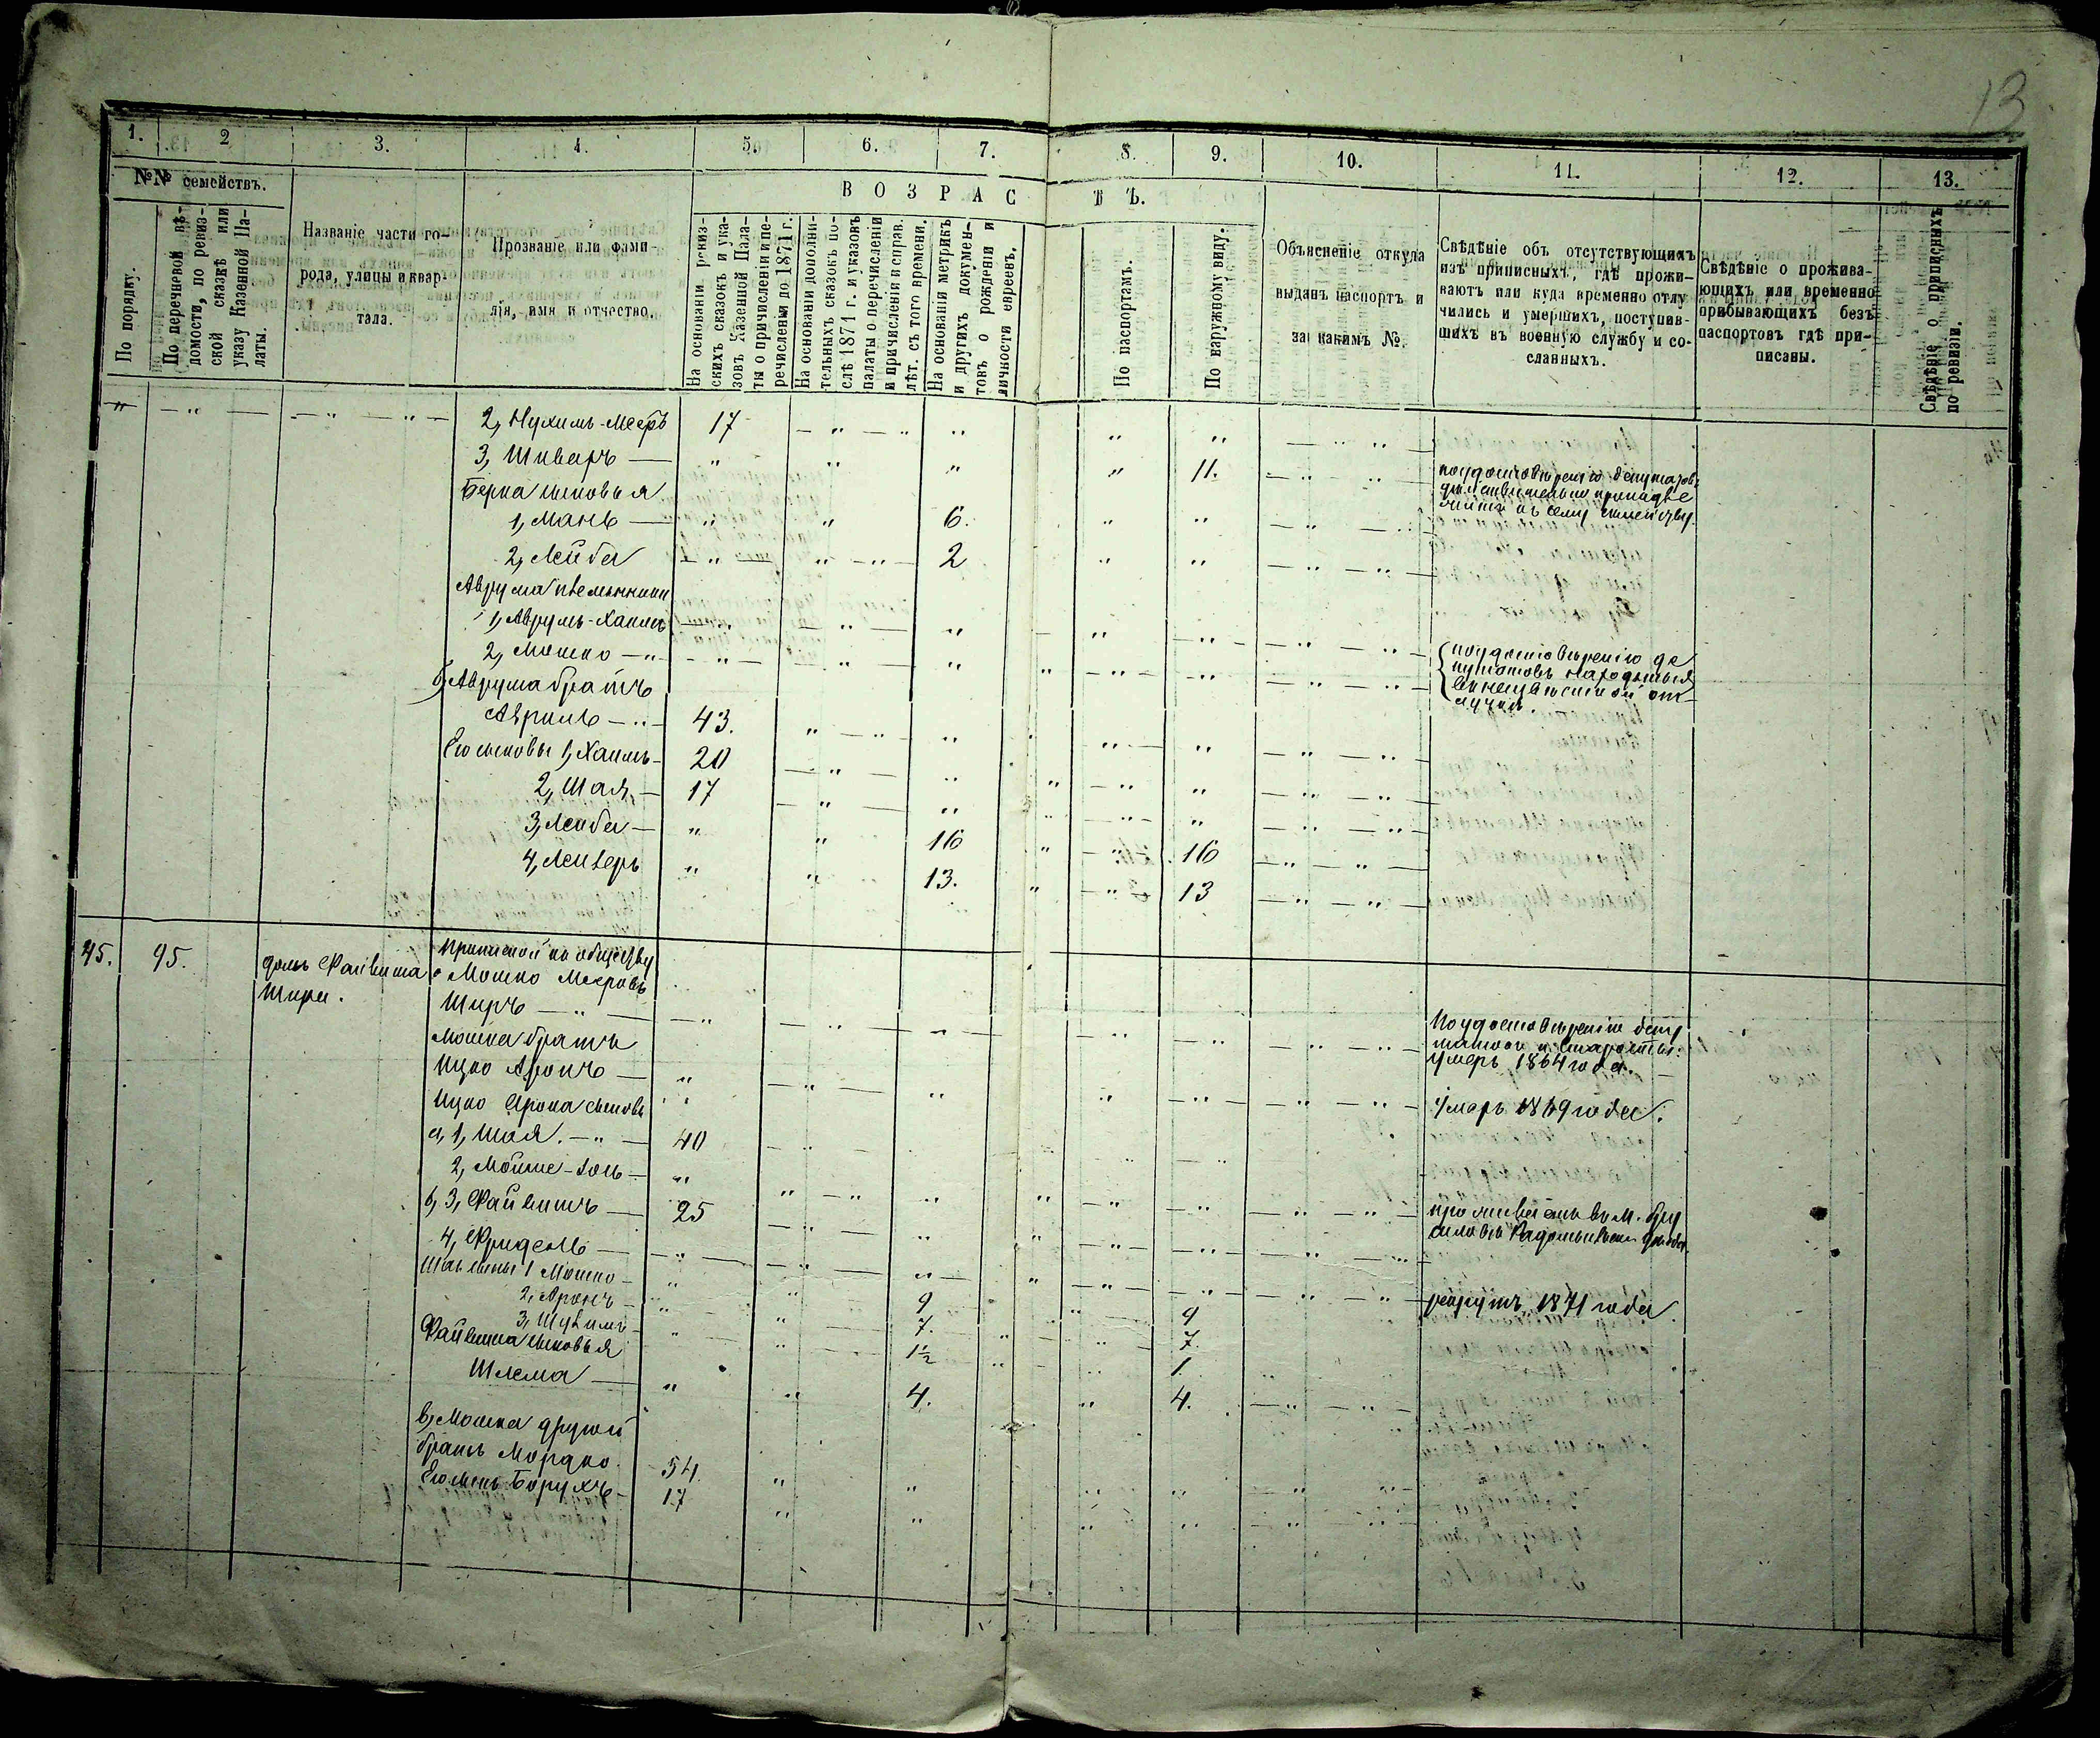 13
1. 2 3. 4. 5. 6. 7. 8. 9. 10. 11. 12. 13.
№№ семействъ.
По порядку.
По перечневой вѣ-
домости, по ревиз-
ской сказкѣ или
указу Казенной Па-
латы.
Названіе части го-
рода, улицы и квар-
тала.
Прозваніе или фами-
лія, имя и отчество.
ВОЗРАСТЪ.
На основаніи ревиз-
скихъ сказокъ и ука-
зовъ Казенной Пала-
ты о причисленіи и пе-
речисленіи до 1871 г.
На основаніи дополни-
тельныхъ сказокъ по-
слѣ 1871 г. и указовъ
палаты о перечисленіи
и причисленіи и справ.
лѣт. съ того времени.
На основаніи метрикъ
и другихъ докумен-
товъ о рожденіи и
личности евреевъ.
По паспортамъ.
По наружному виду.
Объясненіе откуда
выданъ паспортъ и
за какимъ №.
Свѣдѣніе объ отсутствующихъ
изъ приписныхъ, гдѣ прожи-
ваютъ или куда временно отлу
чились и умершихъ, поступив-
шихъ въ военную службу и со-
сланныхъ.
Свѣдѣніе о прожива-
ющихъ или временно
прибывающихъ безъ
паспортовъ гдѣ при-
писаны.
Свѣдѣніе о приписныхъ
по ревизіи.
2, Нухимъ-Меръ 17
3, Шиваръ — 11.
по удостовѣренію депутатовъ
дѣйствительно принадле
житъ къ сему семейству.
Берка сыновья
1, Мань — 6.
2, Лейба 2
Аврума племянники
1, Аврумъ-Хаимъ
2, Мошко
по удостовѣренію де
путатовъ находятся
въ неизвѣстной от-
лучкѣ.
б, Аврума братъ
Авриль 43.
Его сыновья 1, Хаимъ 20
2, Шая 17
3, Лейба — 16 16
4, Лейзеръ 13. 13
45. 95. домъ Файвиша
Шира.
Приписной по обществу
Мошко Меровъ
Ширъ
По удостовѣренію депу
татовъ и старосты
умеръ 1864 года.
Мошка братъ
Ицко Аронъ —
умеръ 1869 года.
Ицко Арона сыновья
а, 1, Шая. 40
2, Мойше-
проживаетъ въ м. Бру
силовѣ Радомысльск. уѣзда.
б, 3, Файвишъ — 25
4, Фридель —
рекрутъ 1871 года.
Шаи сыны 1 Мошко 9 9
2, Аронъ 7. 7.
3, 1½ 1.
Файвиша сыновья
Шлема — 4. 4.
в, Мошка другой
братъ Мордко. 54
Его сынъ Борухъ 17